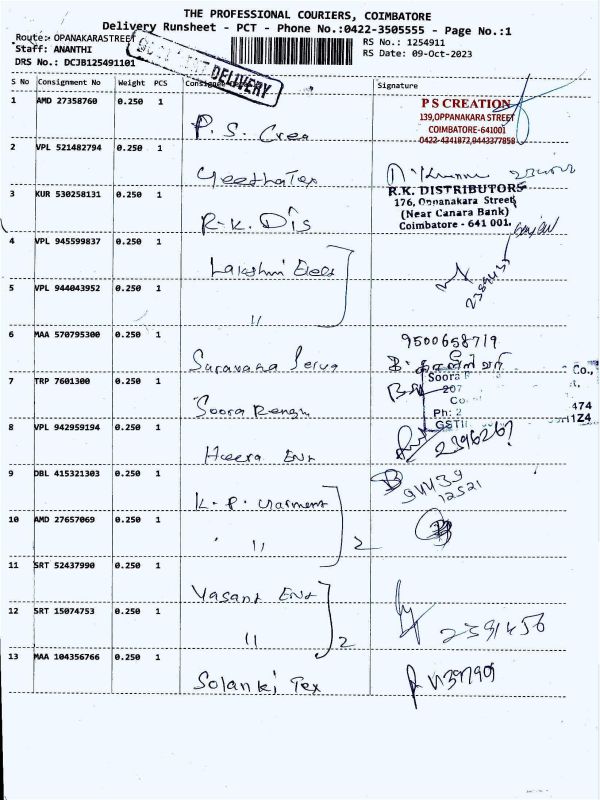 THE PROFESSIONAL COURIERS, COIMBATORE
Delivery Runsheet - PCT - Phone No.:0422-3505555 - Page No.:1
Route:- OPANAKARASTREET
RS No.: 1254911
Staff: ANANTHI
RS Date: 09-Oct-2023
DRS No.: DCJB125491101
DELIVERY
S No Consignment No Weight PCS Signature
1 AMD 27358760 0.250 1 P. S. Crea
P S CREATION
139,OPPANAKARA STREET
COIMBATORE-641001
0422-4341872,9443377858
2 VPL 521482794 0.250 1 Geetha Tex
3 KUR 530258131 0.250 1 R-K. Dis
R.K. DISTRIBUTORS
176, Oppanakara Street
(Near Canara Bank)
Coimbatore - 641 001.
4 VPL 945599837 0.250 1 Lakshmi Elec
5 VPL 944043952 0.250 1 "
6 MAA 570795300 0.250 1 Saravana
9500658719
7 TRP 7601300 0.250 1 Soora
Soora
Co.,
207
474
Ph: 2
GSTI
8 VPL 942959194 0.250 1 Heera Ent
2396267
9 DBL 415321303 0.250 1 K. P. Garment
94439
12521
10 AMD 27657069 0.250 1 " 2
11 SRT 52437990 0.250 1 Vasant Ent
12 SRT 15074753 0.250 1 " 2
2391456
13 MAA 104356766 0.250 1 Solanki Tex